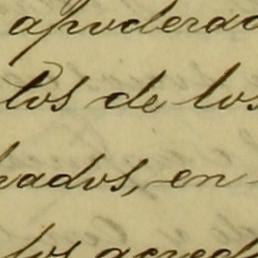 apoderad
tos de los
vados, en
los acred